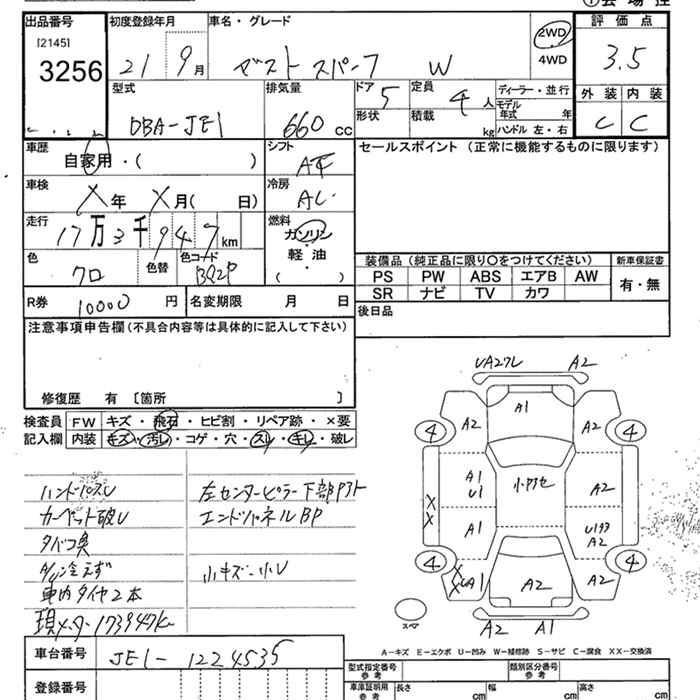 ①会場控
出品番号 初度登録年月 車名・グレード 2WD 評価点
[2145]
3256 21 9月 ゼスト スパーク W 4WD 3.5
型式 排気量 ドア 5 定員 4人 ディーラー・並行 外装 内装
DBA-JE1 660cc 形状 積載 kg モデル年式 年 C C
ハンドル 左・右
車歴 自家用・( ) シフト AT セールスポイント (正常に機能するものに限ります)
車検 X年 X月( 日) 冷房 AC
走行 17万3千947km 燃料 ガソリン
軽油
( )
色 クロ 色替 色コード B92P
装備品 (純正品に限り○をつけてください) 新車保証書
PS PW ABS エアB AW 有・無
SR ナビ TV カワ
R券 10000円 名変期限 月 日 後日品
注意事項申告欄(不具合内容等は具体的に記入して下さい)
修復歴 有 〔箇所 〕
検査員 FW キズ・飛石・ヒビ割・リペア跡・×要
記入欄 内装 キズ・汚レ・コゲ・穴・スレ・キレ・破レ
左センターピラー下部アト
カーペット破U エンドパネルBP
タバコ臭
A/C冷えず 小キズ・小U
車内タイヤ2本
現メーター173947K
UA27L A2
A1
4 A2 A2 4
A1
U1 A2
X
X
A1 U193
A2
4 4
X
X
UA1 A2 A2
スペア
A2 A1
A-キズ E-エクボ U-凹み W-補修跡 S-サビ C-腐食 XX-交換済
車台番号 JE1-1224535
登録番号
型式指定番号 参考 類別区分番号 参考
車庫証明用 参考 長さ cm 幅 cm 高さ cm